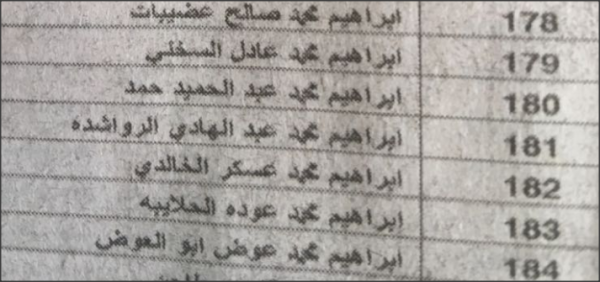 178 ابراهيم محمد صالح عضيبات
179 ابراهيم محمد عادل السخني
180 ابراهيم محمد عبد الحميد حمد
181 ابراهيم محمد عبد الهادي الرواشده
182 ابراهيم محمد عسكر الخالدي
183 ابراهيم محمد عوده الحلايبه
184 ابراهيم محمد عوض ابو العوض